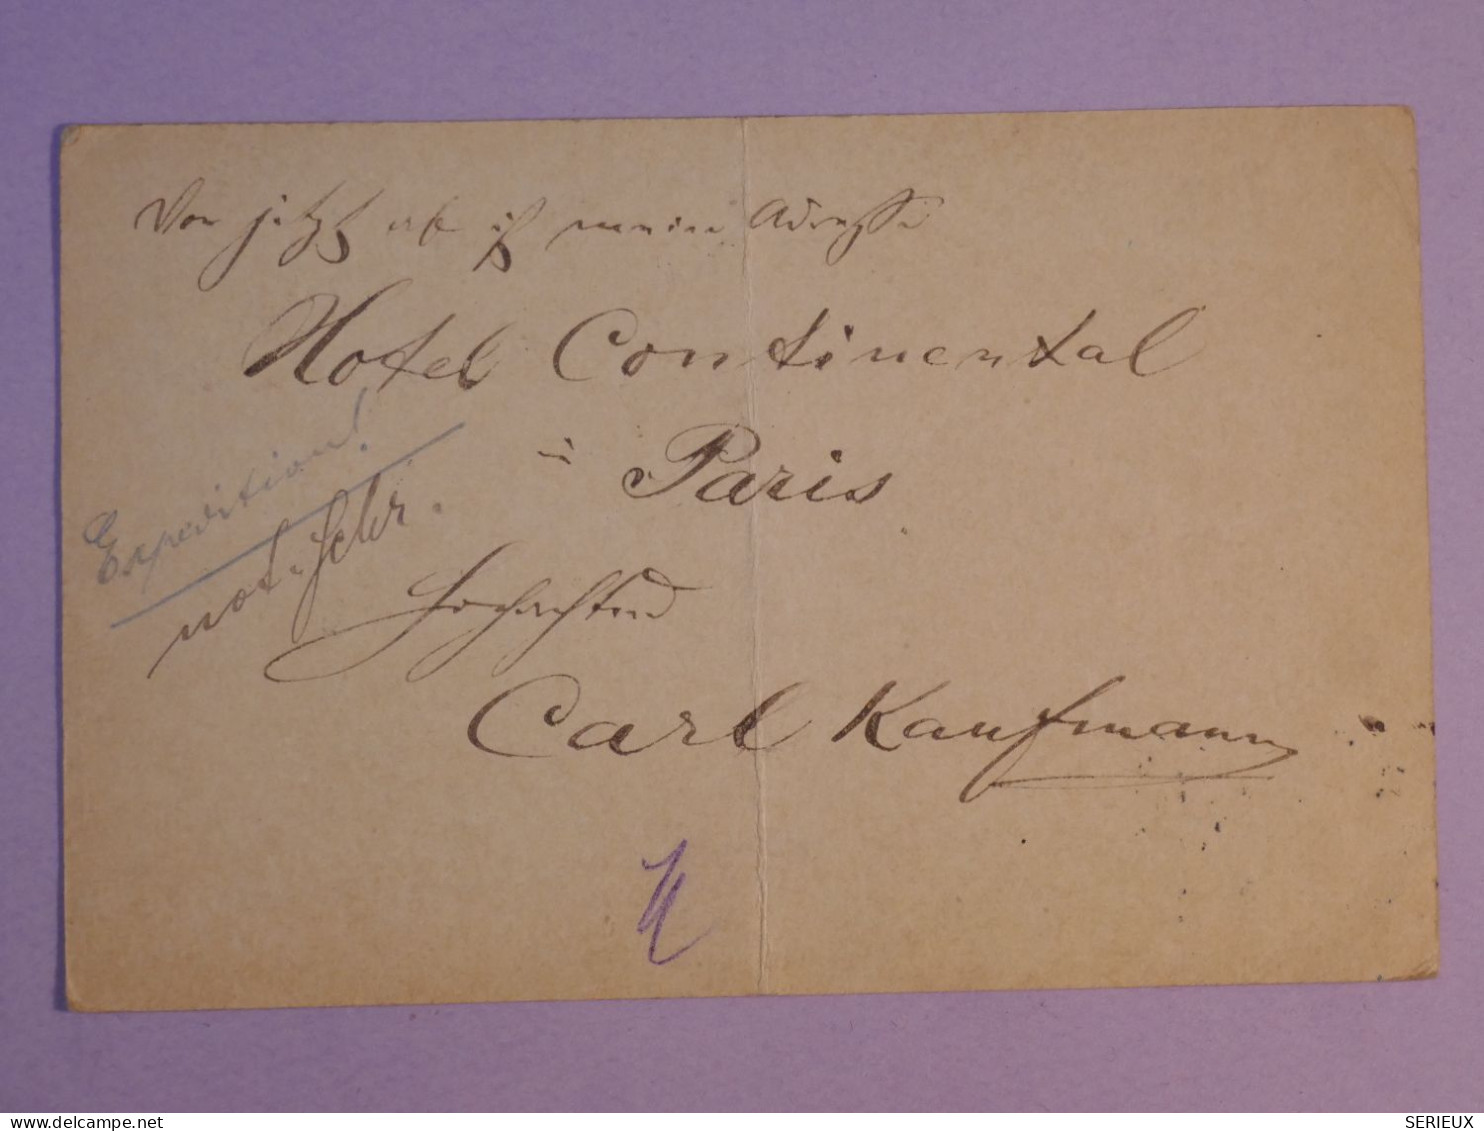 Von jetzt ab ist meine Adresse
Hotel Continental
in Paris
Expedition!
not.
Hochachtend
Carl Kaufmann
www.delcampe.net
SERIEUX